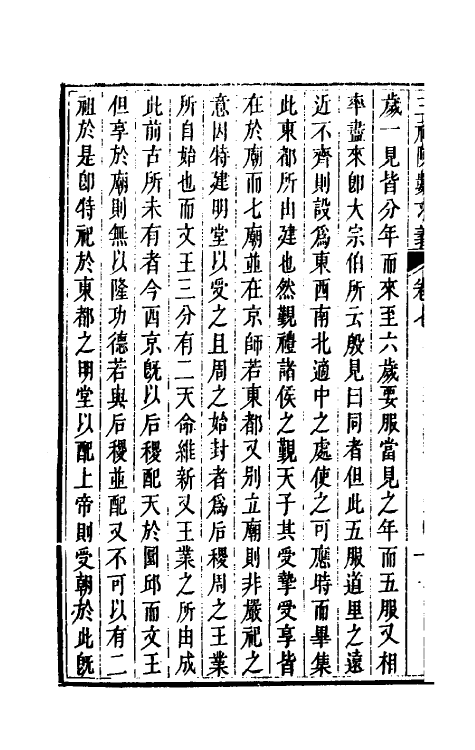 歲一見皆分年而來至六歲要服當見之年而五服又相
率盡來卽大宗伯所云殷見曰同者但此五服道里之遠
近不齊則設爲東西南北適中之處使之可應時而畢集
此東都所由建也然覲禮諸侯之覲天子其受摯受享皆
在於廟而七廟並在京師若東都又别立廟則非嚴祀之
意因特建明堂以受之且周之始封者爲后稷周之王業
所自始也而文王三分有二天命維新又王業之所由成
此前古所未有者今西京旣以后稷配天於圜邱而文王
但享於廟則無以隆功德若與后稷並配又不可以有二
祖於是卽特祀於東都之明堂以配上帝則受朝於此旣